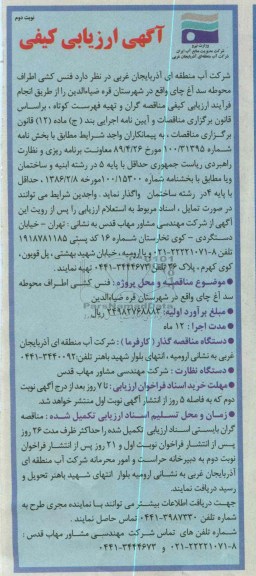 نوبت دوم
وزارت نیرو
شرکت مدیریت منابع آب ایران
شرکت آب منطقه‌ای آذربایجان غربی
آگهی ارزیابی کیفی
شرکت آب منطقه ای آذربایجان غربی در نظر دارد فنس کشی اطراف
محوطه سد آغ چای واقع در شهرستان قره ضیاءالدین را از طریق انجام
فرآیند ارزیابی کیفی مناقصه گران و تهیه فهرست کوتاه ، براساس
قانون برگزاری مناقصات و آیین نامه اجرایی بند ( ج) ماده (۱۲) قانون
برگزاری مناقصات ، به پیمانکاران واجد شرایط مطابق با بخش نامه
شماره ۱۰۰/۳۱۳۹۵ مورخ ۸۹/۴/۲۶ معاونت برنامه ریزی و نظارت
راهبردی ریاست جمهوری حداقل با پایه ۵ در رشته ابنیه و ساختمان
ویا مطابق با بخشنامه شماره ۱۰۰/۱۵۳۰۰مورخه ۱۳۸۶/۲/۸ ، حداقل
با پایه ۴در رشته ساختمان واگذار نماید . واجدین شرایط می توانند
در صورت تمایل ، اسناد مربوط به استعلام ارزیابی را پس از رویت این
آگهی از شرکت مهندسی مشاور مهاب قدس به نشانی : تهران - خیابان
دستگردی - کوی تخارستان شماره ۱۶ کد پستی ۱۹۱۸۷۸۱۱۸۵
تلفن ۸-۲۲۲۲۱۰۷۱-۰۲۱ و یاارومیه، خیابان شهید بهشتی، پل قویون،
کوی کهرم ، پلاک ۳۶ تلفن ۳۴۴۴۶۷۳-۰۴۴۱ تهیه نمایند.
• موضوع مناقصه و محل پروژه : فنس کشی اطراف محوطه
سد آغ چای واقع در شهرستان قره ضیاءالدین
• مبلغ برآورد اولیه: ۲۴۹۸۲۷۶۸۸۳ ریال
• مدت اجرا : ۱۲ ماه
• دستگاه مناقصه گذار ( کارفرما) : شرکت آب منطقه ای آذربایجان
غربی به نشانی ارومیه ، انتهای بلوار شهید باهنر تلفن:۳۴۴۰۰۹۲-۰۴۴۱
• دستگاه نظارت : شرکت مهندسی مشاور مهاب قدس
• مهلت خرید اسناد فراخوان ارزیابی : تا ۷ روز بعد از درج آگهی نوبت
دوم که به فاصله ۵ روز از انتشار آگهی نوبت اول منتشر خواهد شد.
• زمان و محل تسلیم اسناد ارزیابی تکمیل شده : مناقصه
گران بایستی اسناد ارزیابی تکمیل شده را حداکثر ظرف مدت ۲۶ روز
پس از انتشار فراخوان نوبت اول و ۲۱ روز پس از انتشار فراخوان
نوبت دوم به دبیرخانه حراست و امور محرمانه شرکت آب منطقه ای
آذربایجان غربی به نشانی ارومیه بلوار انتهای شهید باهنر تحویل و
رسید دریافت نمایند.
جهت دریافت اطلاعات بیشتر می توانند با نماینده مجری طرح به
شماره تلفن ۳۹۸۷۳۳۰-۰۴۴۱ تماس حاصل نمایند .
شماره تلفن های تماس شرکت مهندسی مشاور مهاب قدس :
۸-۲۲۲۲۱۰۷۱-۰۲۱ و ۳۴۴۴۶۷۳-۰۴۴۱